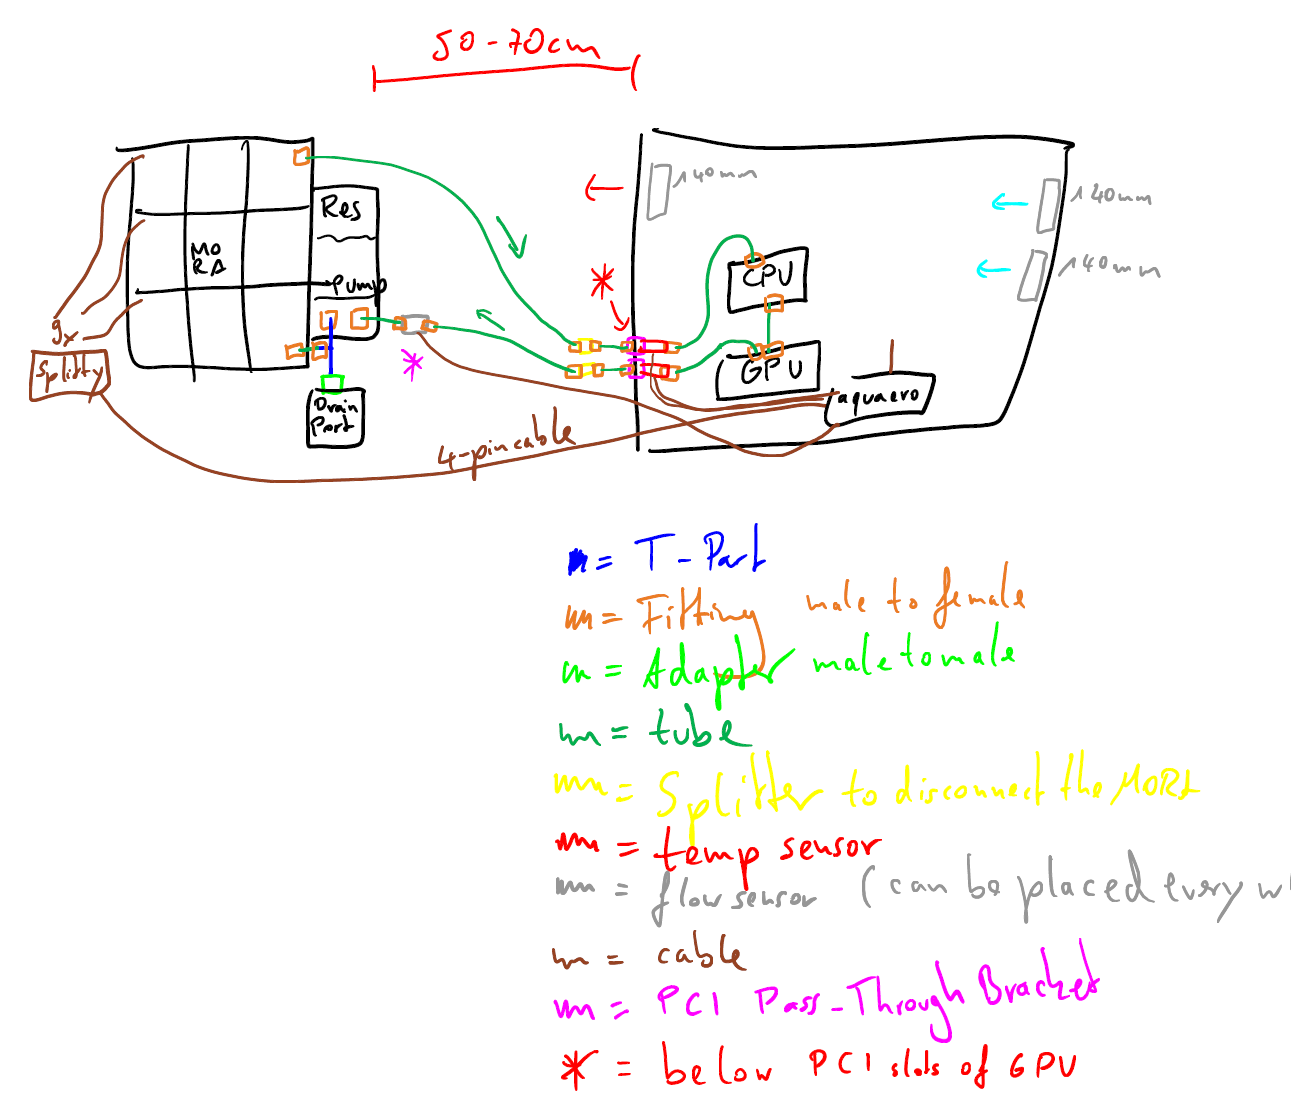 50-70cm
140mm
140mm
140mm
Res
MO
RA
Pump
CPU
GPU
9x
Splitty
Drain
Port
aquaero
4-pin cable
= T-Part
= Fitting male to female
= Adapter male to male
= tube
= Splitter to disconnect the MORA
= temp sensor
= flow sensor (can be placed every wh
= cable
= PCI Pass-Through Bracket
* = below PCI slots of GPU